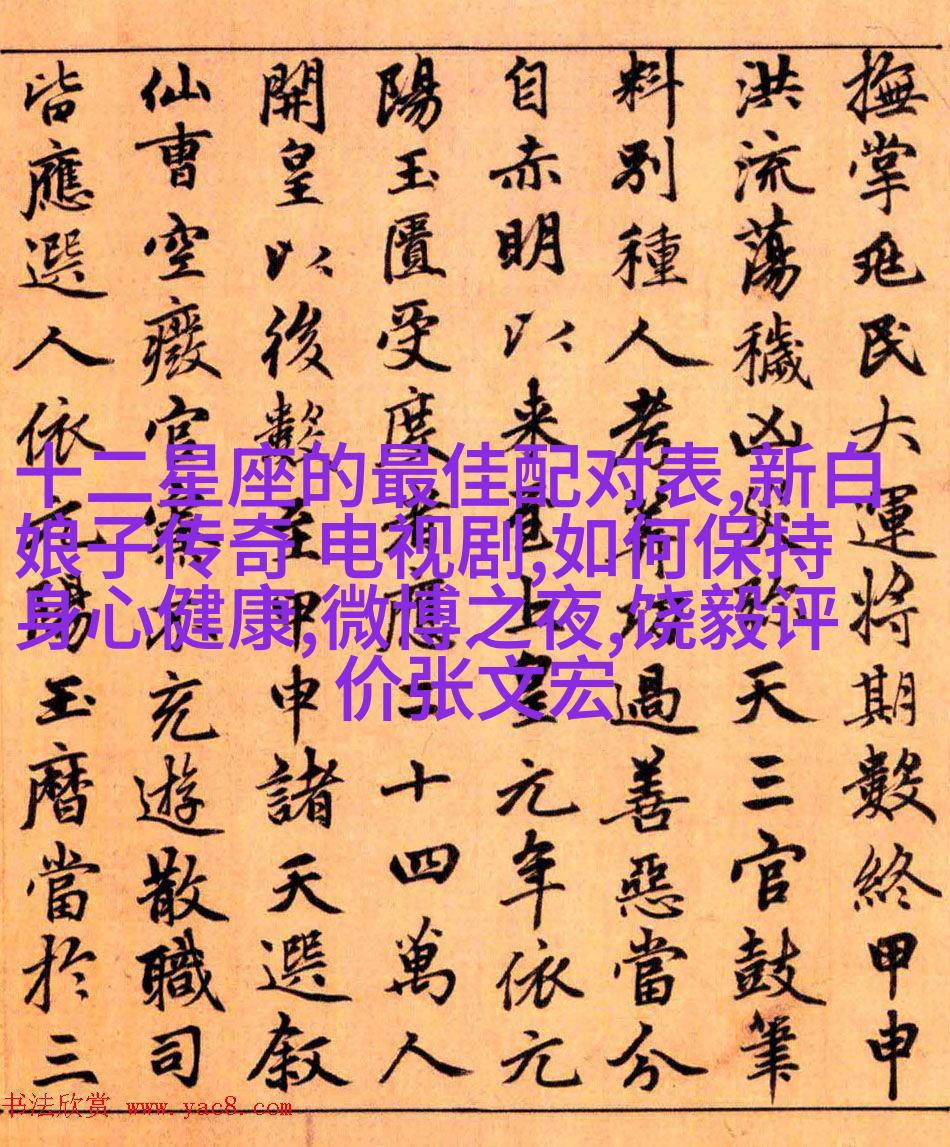 撫掌兆民大運將期數終甲申
洪流蕩穢凶災弥天三官鼓筆
料別種人考過善惡當分
自赤明以来至上皇元年依元
陽玉匱受度者應二十四萬人
開皇以後數至甲申諸天選叙
仙曹空廢官寮不充遊散職司
皆應選人依元陽玉曆當於三
十二星座的最佳配对表,新白
娘子传奇 电视剧,如何保持
身心健康,微博之夜,饶毅评
价张文宏
书法欣赏 www.yac8.com